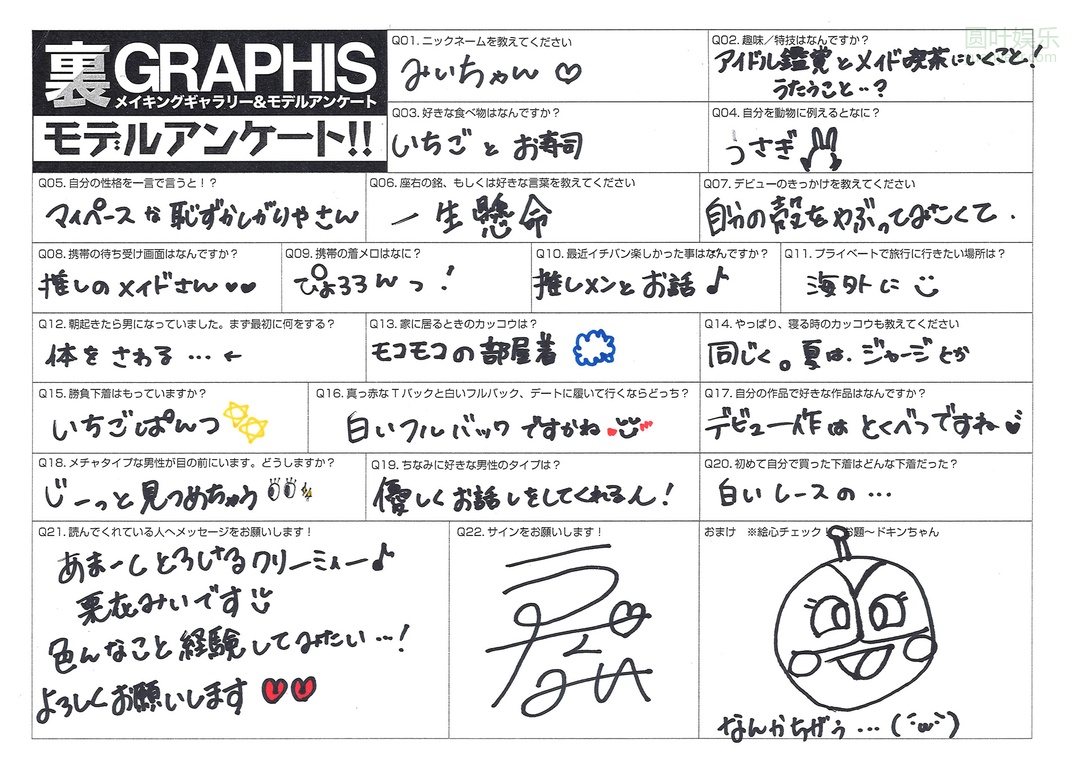 圆叶娱乐
裏GRAPHIS
メイキングギャラリー&モデルアンケート
モデルアンケート!!
Q01. ニックネームを教えてください
みいちゃん♡
Q02. 趣味／特技はなんですか？
アイドル鑑賞とメイド喫茶にいくこと!
うたうこと…?
Q03. 好きな食べ物はなんですか？
いちごとお寿司
Q04. 自分を動物に例えるとなに？
うさぎ
Q05. 自分の性格を一言で言うと！？
マイペースな恥ずかしがりやさん
Q06. 座右の銘、もしくは好きな言葉を教えてください
一生懸命
Q07. デビューのきっかけを教えてください
自分の殻をやぶってみたくて.
Q08. 携帯の待ち受け画面はなんですか？
推しのメイドさん♥♥
Q09. 携帯の着メロはなに？
ぴょろろんっ!
Q10. 最近イチバン楽しかった事はなんですか？
推しメンとお話♪
Q11. プライベートで旅行に行きたい場所は？
海外に
Q12. 朝起きたら男になっていました。まず最初に何をする？
体をさわる…←
Q13. 家に居るときのカッコウは？
モコモコの部屋着
Q14. やっぱり、寝る時のカッコウも教えてください
同じく。夏は、ジャージとか
Q15. 勝負下着はもっていますか？
いちごぱんつ
Q16. 真っ赤なTバックと白いフルバック、デートに履いて行くならどっち？
白いフルバックですかね
Q17. 自分の作品で好きな作品はなんですか？
デビュー作はとくべつですね♥
Q18. メチャタイプな男性が目の前にいます。どうしますか？
じーっと見つめちゃう
Q19. ちなみに好きな男性のタイプは？
優しくお話しをしてくれる人!
Q20. 初めて自分で買った下着はどんな下着だった？
白いレースの…
Q21. 読んでくれている人へメッセージをお願いします！
あまーしとろけるクリーミィー♪
栗衣みいです
色んなこと経験してみたい…!
よろしくお願いします
Q22. サインをお願いします！
おまけ　※絵心チェック！お題〜ドキンちゃん
なんかちがう…(´･ω･`)